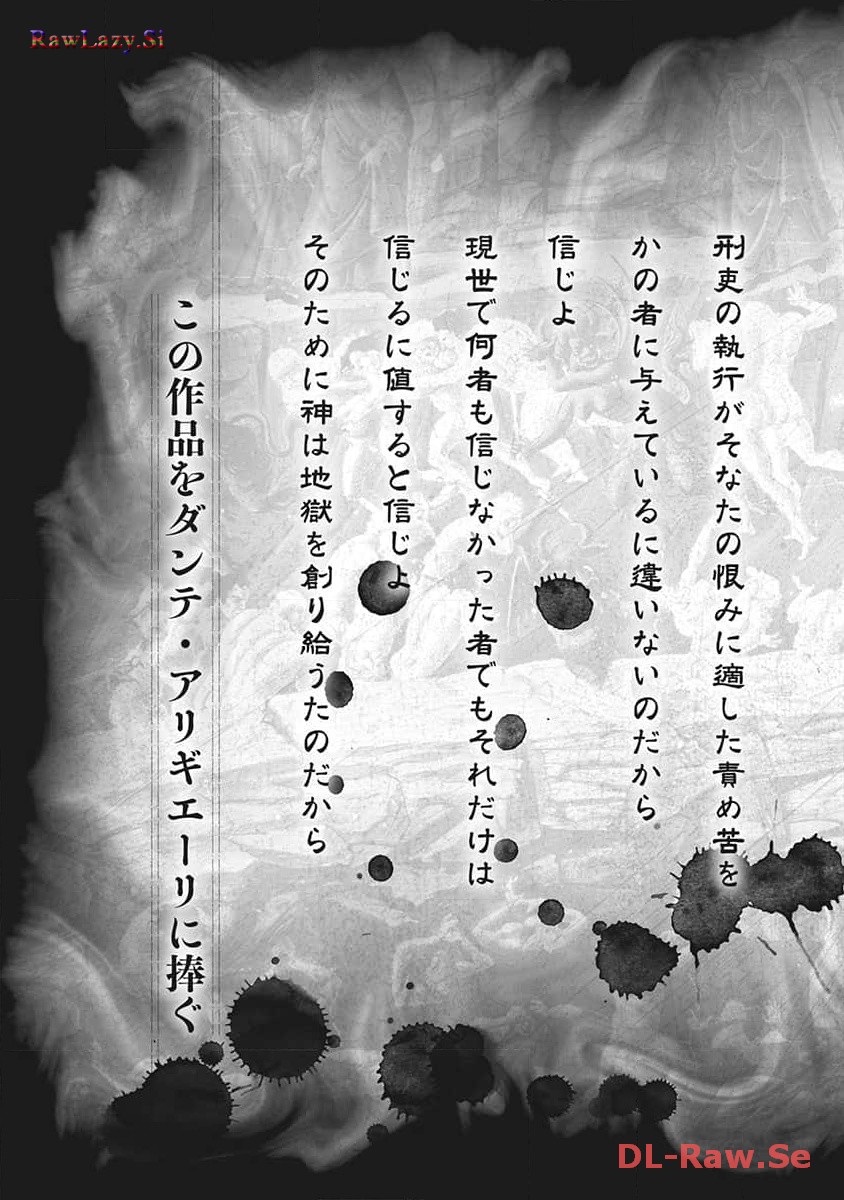 RawLazy.Si
刑吏の執行がそなたの恨みに適した責め苦を
かの者に与えているに違いないのだから
信じよ
現世で何者も信じなかった者でもそれだけは
信じるに値すると信じよ
そのために神は地獄を創り給うたのだから
この作品をダンテ・アリギエーリに捧ぐ
DL-Raw.Se